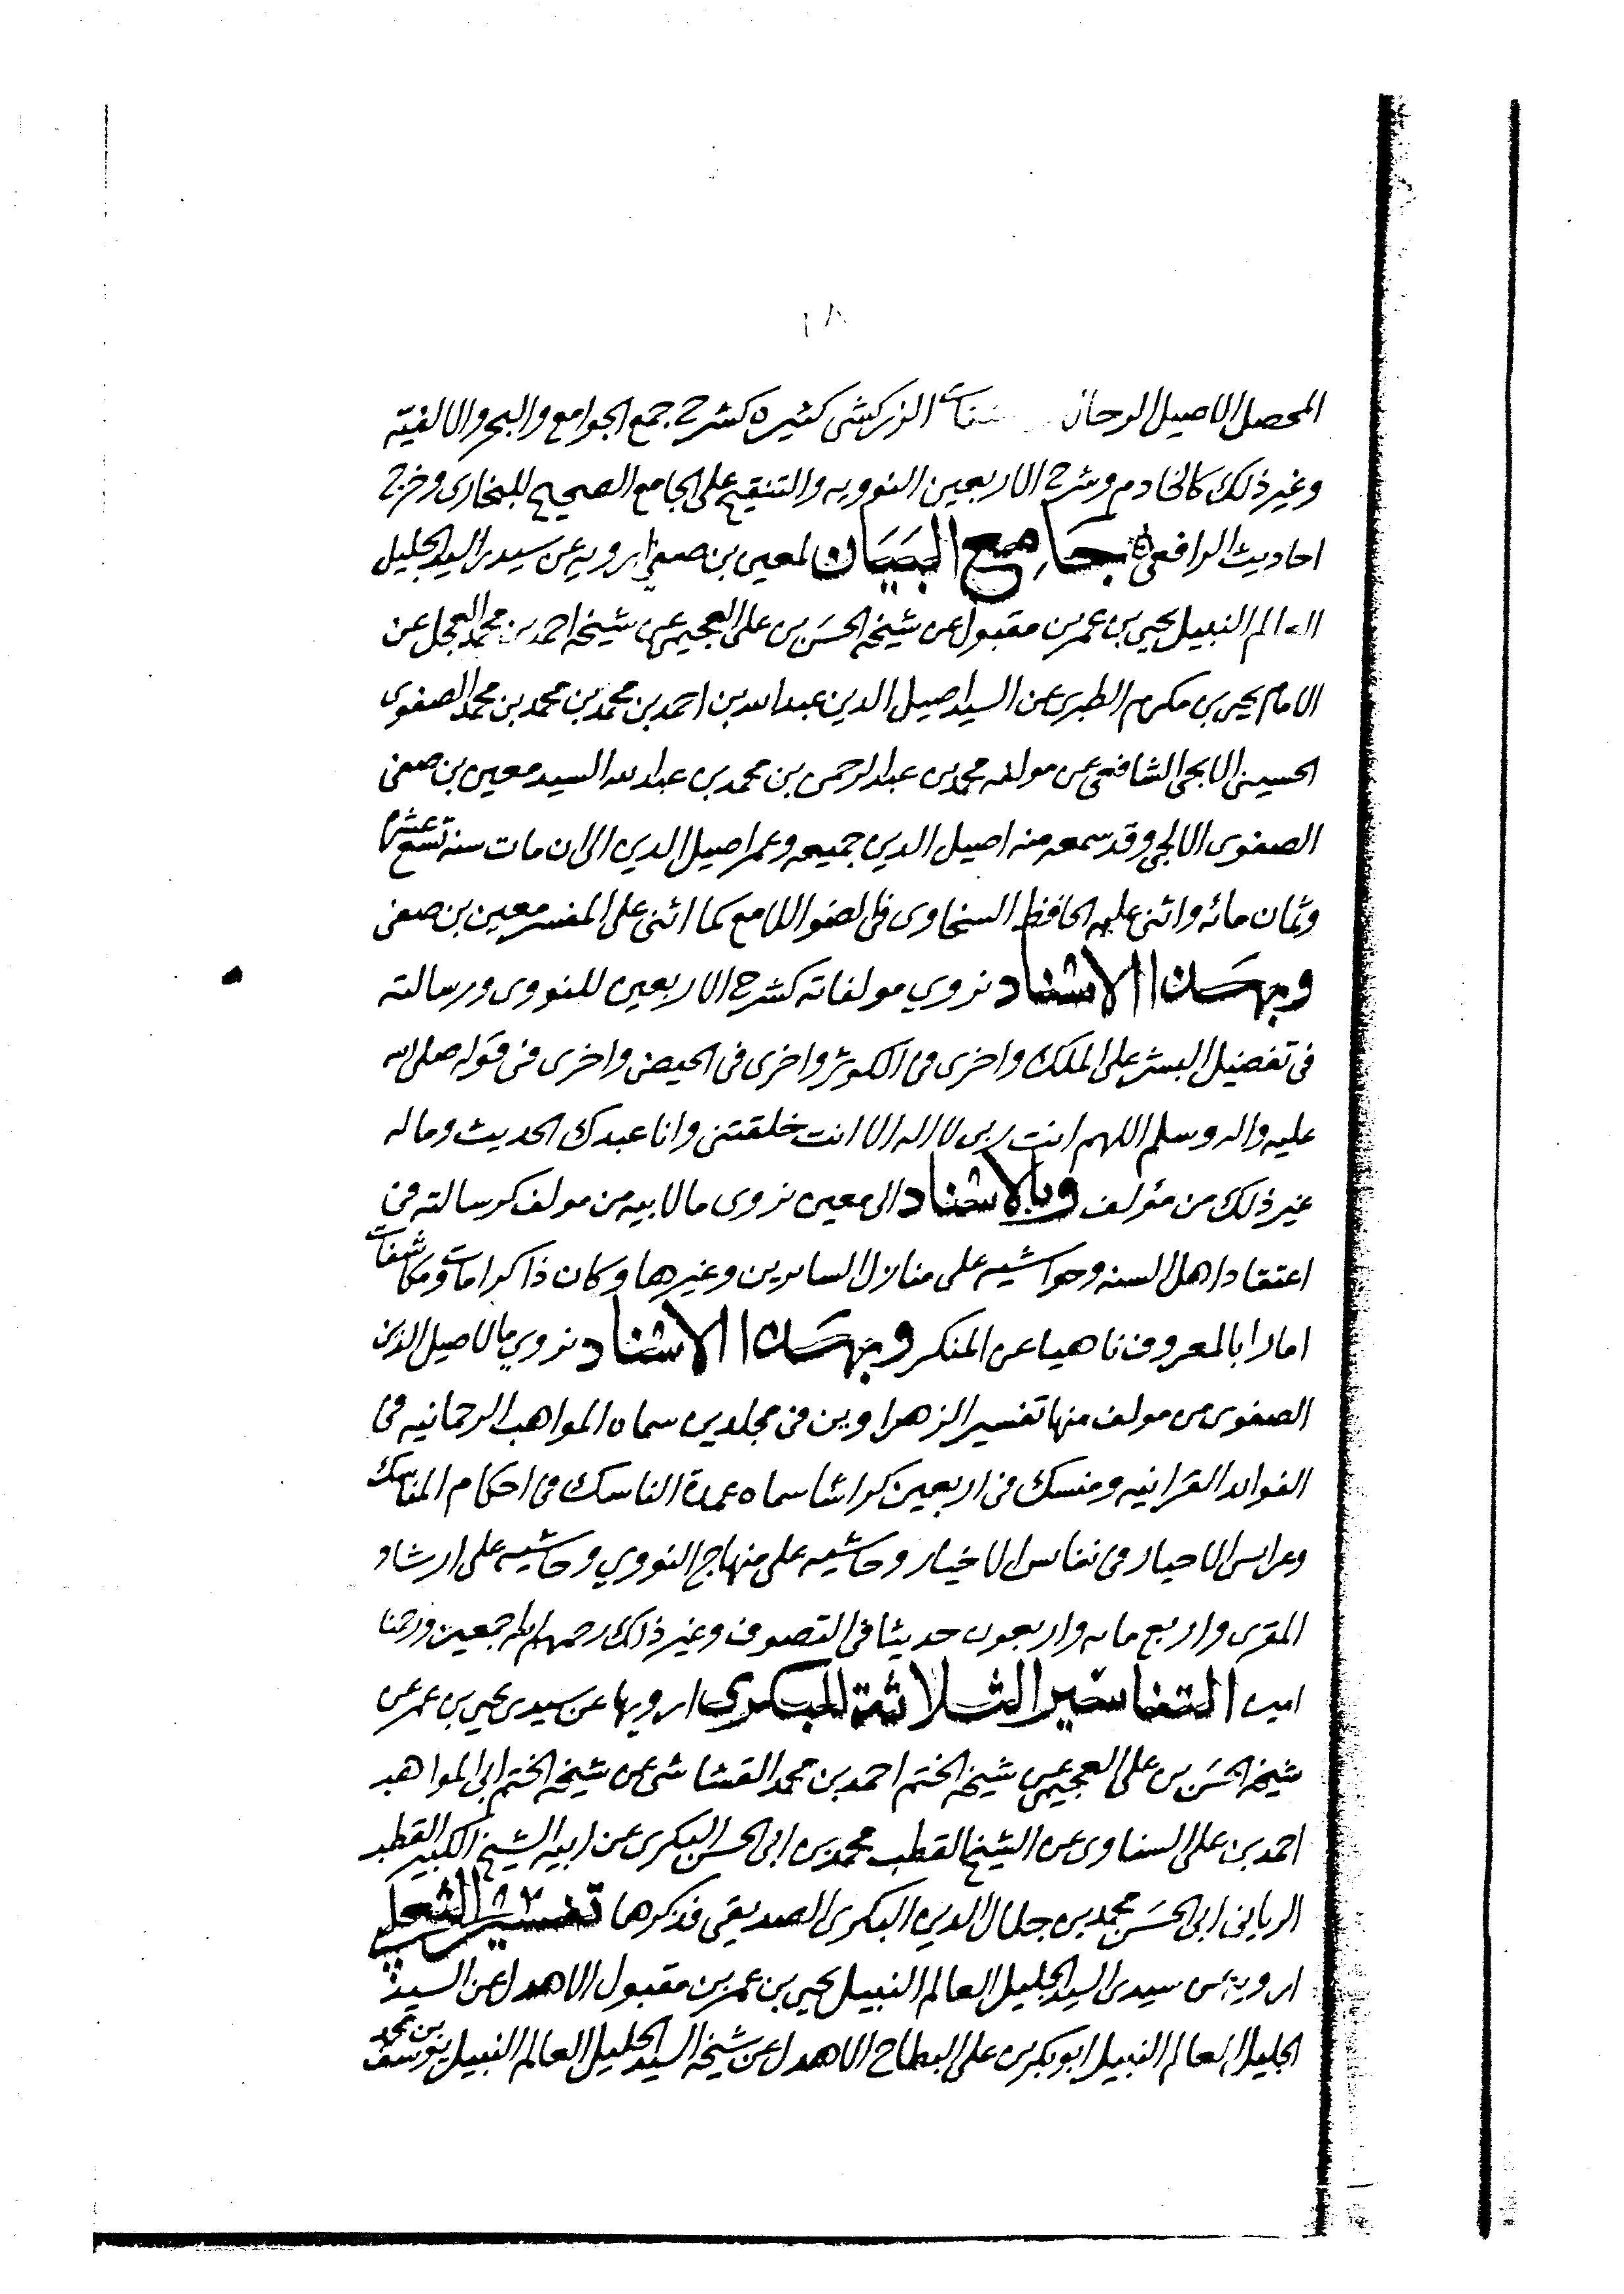 ١٨
المحصل الاصيل الرحال الزركشى كثيره كشرح جمع الجوامع والبحر والالفيّه
وغير ذلك كالخادم وشرح الاربعين النوويه والتنقيح على الجامع الصحيح للبخارى وخرج
احاديث الرافعى جَامِع البَيَان لمعين بن صفي ارويه عن سيدى السيد الجليل
العالم النبيل يحيى بن عمر بن مقبول عن شيخه الحسَن بن على العجيمى عن شيخه احمد بن محمد العجل عن
الامام يحيى بن مكرم الطبرى عن السيد اصيل الدين عبدالله بن احمد بن محمد بن محمد بن محمد الصفوى
الحسينى الايجى الشافعى عن مولفه محمد بن عبدالرحمن بن محمد بن عبدالله السيد معين بن صفى
الصفوى الايجي وقد سمعه منه اصيل الدين جميعه وعمر اصيل الدين الى ان مات سنه تسع عشر
وثمان مائه واثنى عليه الحافظ السخاوى فى الضو اللامع كما اثنى على المفسر معين بن صفى
وبهَذا الاسْناد نروي مولفاته كشرح الاربعين للنووى ورسالته
فى تفضيل البشر على الملك واخرى فى الكوثر واخرى فى الحيض واخرى فى قوله صلى الله
عليه واله وسلم اللهم انت ربى لا اله الا انت خلقتنى وانا عبدك الحديث وماله
غير ذلك من مؤلف وبالاسْناد الى معين نروى مالابيه من مولف كرسالته فى
اعتقاد اهل السنه وحواشيه على منازل السايرين وغيرها وكان ذا كرامات ومكاشفات
امارا بالمعروف ناهيا عن المنكر وبهَذا الاسْناد نروي مالاصيل الدين
الصفوى من مولف منها تفسير الزهراوين فى مجلدين سماه المواهب الرحمانيه فى
الفوايد القرانيه ومنسك فى اربعين كراسًا سماه عمدة الناسك فى احكام المناسك
وعرايس الاحبار فى نفايس الاخيار وحاشيه على منهاج النووي وحاشيه على ارشاد
المقرى واربع مايه واربعون حديثا فى التصوف وغير ذلك رحمهم الله اجمعين ورحمنا
امين التفاسْير الثلاثة للبكرى ارويها عن سيدى يحيى بن عمر عن
شيخه الحسَن بن على العجيمى عن شيخه الختم احمد بن محمد القشاشى عن شيخه الختم ابى المواهب
احمد بن على السناوى عن الشيخ القطب محمد بن ابى الحسن البكرى عن ابيه الشيخ الكبير القطب
الربانى ابى الحسَن محمد بن جلال الدين البكرى الصديقى فذكرها تفسير الثعلبي
ارويه عن سيدى السيد الجليل العالم النبيل يحيى بن عمر بن مقبول الاهدل عن السيد
الجليل العالم النبيل ابو بكر بن على البطاح الاهدل عن شيخه السيد الجليل العالم النبيل يوسف بن محمد